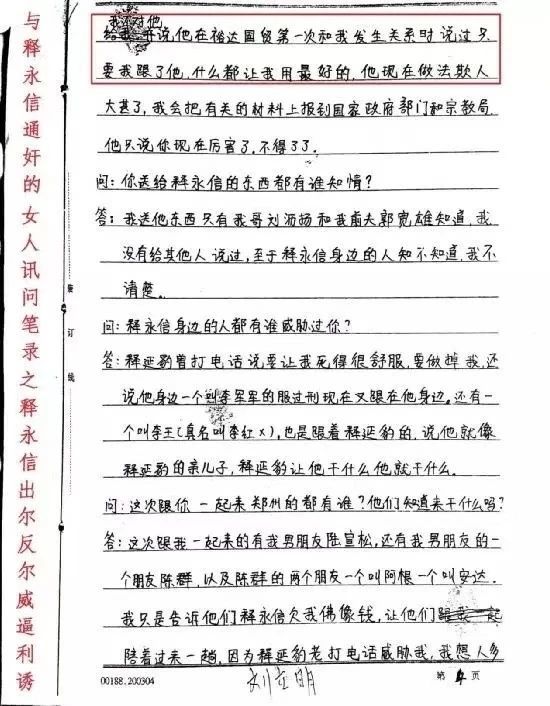 与释永信通奸的女人讯问笔录之释永信出尔反尔威逼利诱
我不对他
给我并说他在裕达国贸第一次和我发生关系时说过只
要我跟了他,什么都让我用最好的,他现在做法欺人
大甚了,我会把有关的材料上报到国家政府部门和宗教局,
他只说你现在厉害了,不得了了.
问:你送给释永信的东西都有谁知情?
答:我送他东西只有我哥刘沥扬和我前夫郭宽雄知道,我
没有给其他人说过,至于释永信身边的人知不知道,我不
清楚。
问:释永信身边的人都有谁威胁过你?
答:释延豹曾打电话说要让我死得很舒服,要做掉我,还
说他身边一个到李军军的服过刑现在又跟在他身边。还有一
个叫李王(真名叫李红x),也是跟着释延豹的,说他就像
释延豹的亲儿子,释延豹让他干什么他就干什么.
问:这次跟你一起来郑州的都有谁?他们知道来干什么吗?
答:这次跟我一起来的有我男朋友陆宣松,还有我男朋友的一
个朋友陈群,以及陈群的两个朋友一个叫阿根一个叫安达.
我只是告诉他们释永信欠我佛像钱,让他们跟我一起
陪着过来一趟,因为释延豹老打电话威胁我,我想人多
装
订
线
00188.200304
刘立明
第 4 页